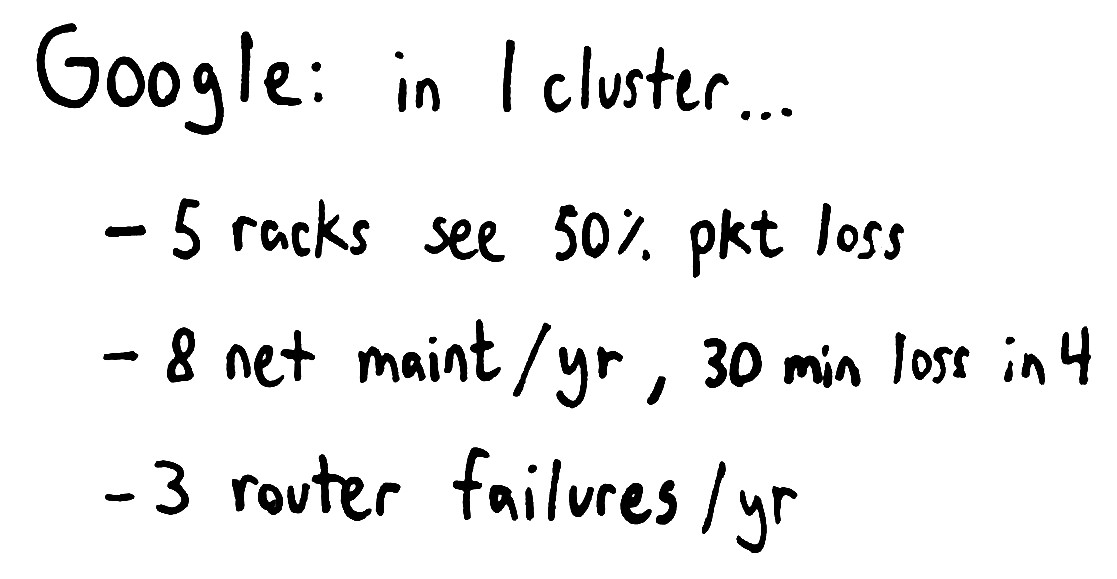 Google: in 1 cluster...
- 5 racks see 50% pkt loss
- 8 net maint/yr, 30 min loss in 4
- 3 router failures/yr